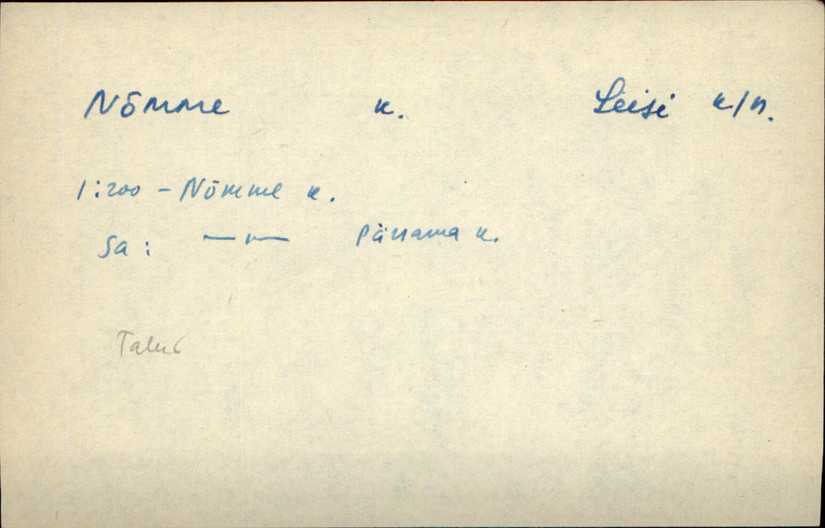 Nõmme k. Leisi k/n.
1:200 - Nõmme k.
Sa: —"— Pärsama k.